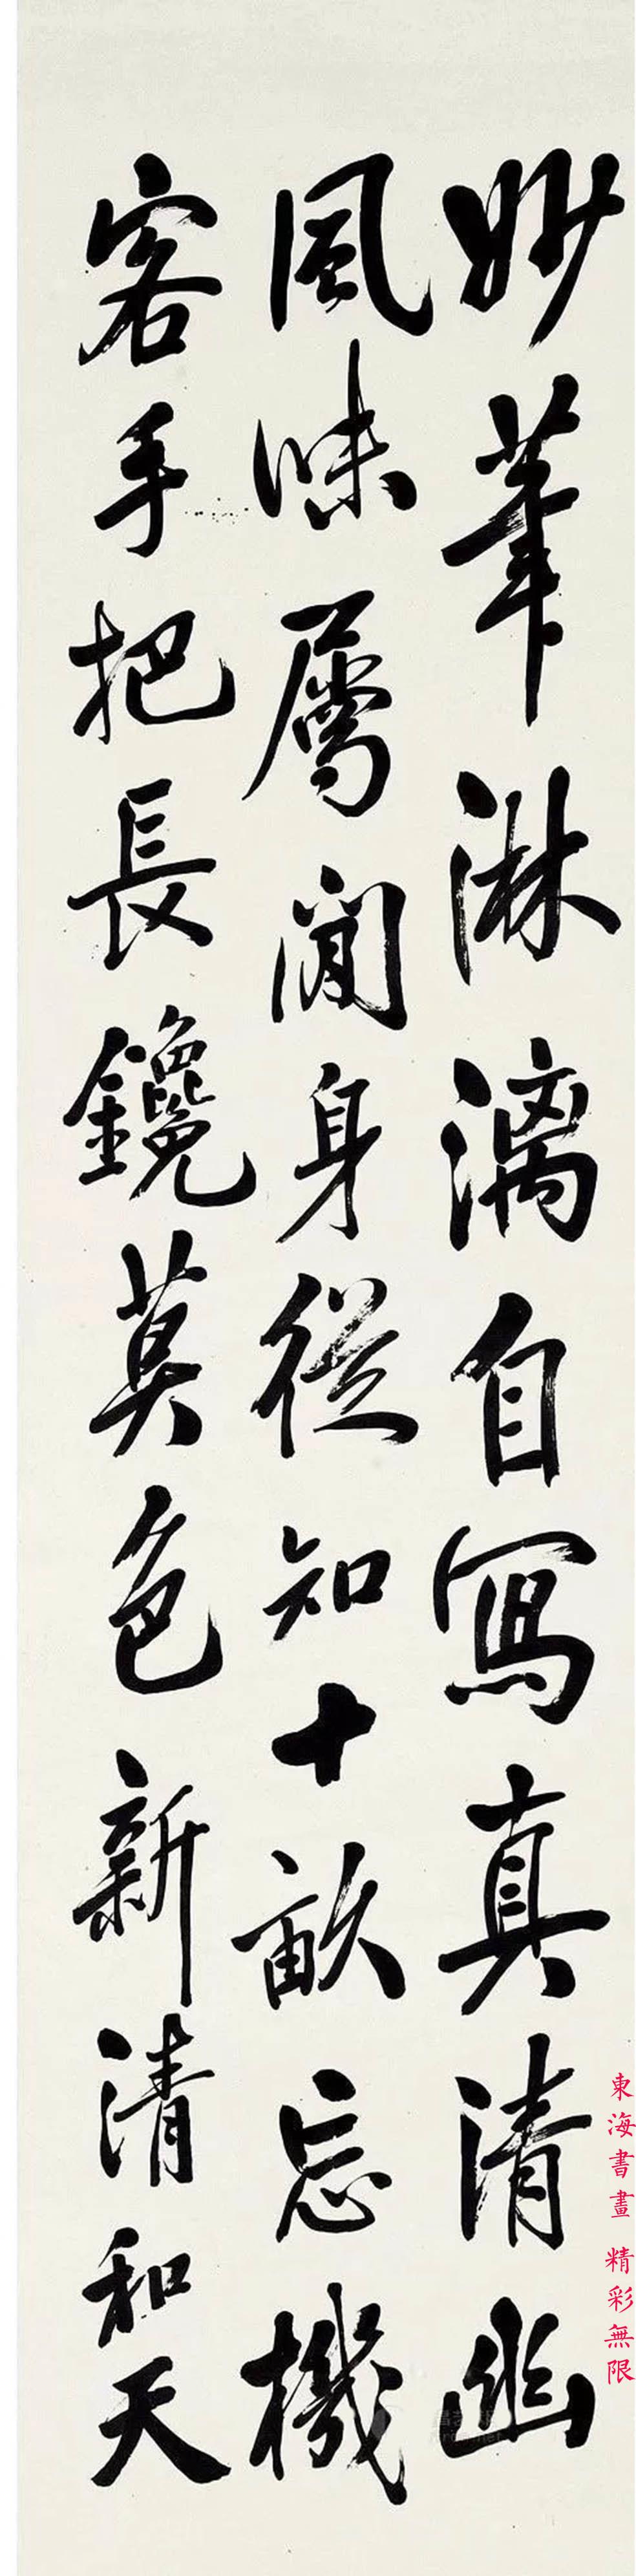 妙筆淋漓自寫真清幽
風味屬閒身從知十畝忘機
客手把長鑱莫色新清和天
東海書畫 精彩無限